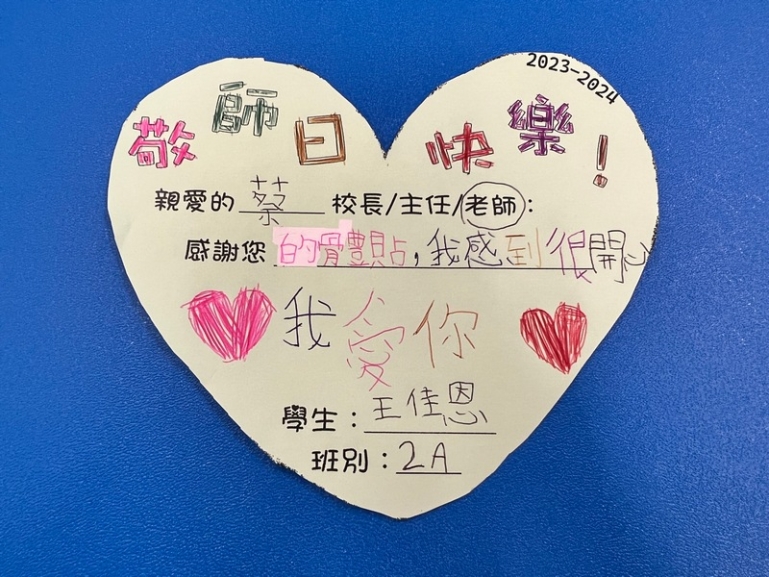 2023-2024
敬師日快樂！
親愛的 蔡 校長/主任/老師：
感謝您 的體貼，我感到很開心
我愛你
學生：王佳恩
班別：2A